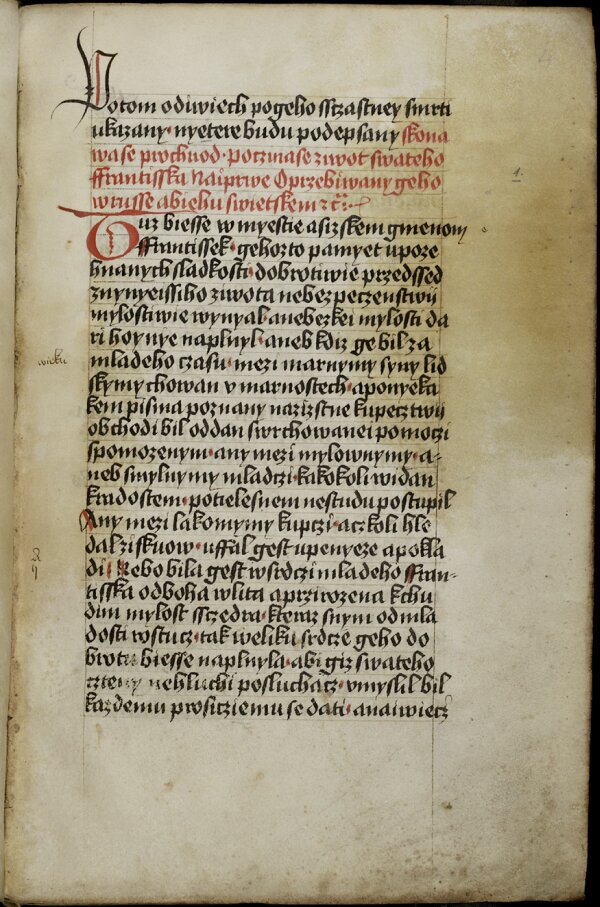 Potom o diwiech po geho sscziastney smrti
ukazany · nyetere budu podepsany skona
wa se prochuod · poczina se zwot swateho
ffrantisska Naiprwe O przebiwany geho
w russe a biehu swietskem ꝛ cꝛ
Muz biesse w myestie asizskem gmenom
ffrantissek · gehozto pamyet u poze
hnanych sladkosti · dobrotiwie przedssed
znynyeissiho zwota nebezpeczenstwij
mylostiwe wynyal · a nebezkei mylosti da
ri hoynye naplnyl · aneb kdiz ge bil za
mladeho czasu · mezi marnymy syny lid
skymy chowan v marnostech · a ponyeka
kem pisma poznany na zistne kupecztwij
obchodi bil oddan swrchowanei pomoczi
spomozenym · any mezi mylownymy · a-
neb smylnymy mladczi · kakokoli widan
k radostem · po tielesnem nestudu postupil
Any mezi lakomymy kupczi · aczkoli hle
dal ziskuow · uffal gest u penyeze a pokla
di · Nebo bila gest w srdczi mladeho ffran-
tisska od boha wlita a przirozena k chu
dim mylost sszedra · kteraz snym od mla
dosti rostucz · tak weliku srdcze geho do
brotu biesse naplnyla · abi giz swateho
cztenye nehluchi posluchacz · vmyslil bil
kazdemu prosicziemu se dati · a naiwiecz
4.